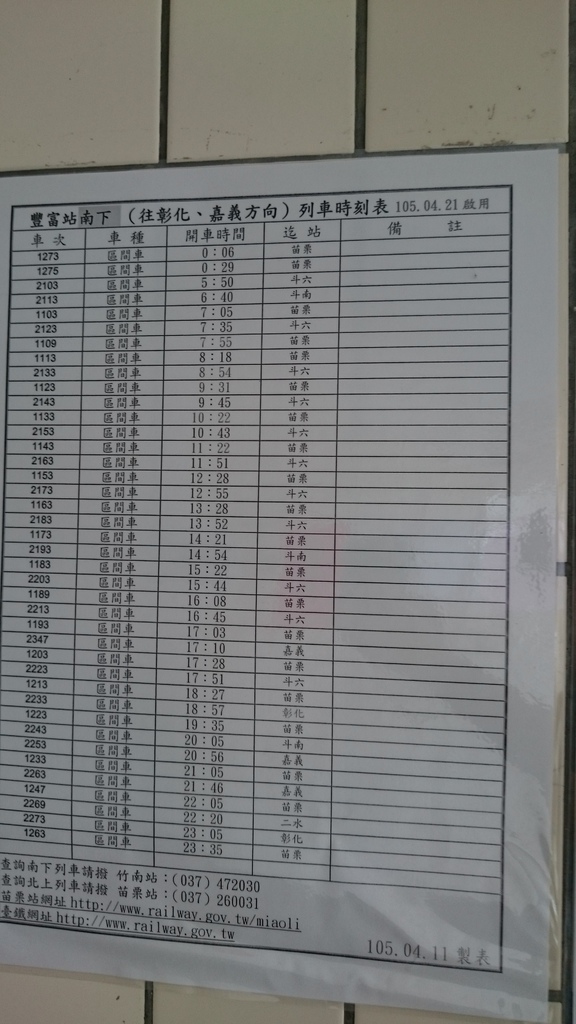 豐富站南下 (往彰化、嘉義方向) 列車時刻表 105.04.21啟用
車次 車種 開車時間 迄站 備註
1273 區間車 0:06 苗栗
1275 區間車 0:29 苗栗
2103 區間車 5:50 斗六
2113 區間車 6:40 斗南
1103 區間車 7:05 苗栗
2123 區間車 7:35 斗六
1109 區間車 7:55 苗栗
1113 區間車 8:18 苗栗
2133 區間車 8:54 斗六
1123 區間車 9:31 苗栗
2143 區間車 9:45 斗六
1133 區間車 10:22 苗栗
2153 區間車 10:43 斗六
1143 區間車 11:22 苗栗
2163 區間車 11:51 斗六
1153 區間車 12:28 苗栗
2173 區間車 12:55 斗六
1163 區間車 13:28 苗栗
2183 區間車 13:52 斗六
1173 區間車 14:21 苗栗
2193 區間車 14:54 斗南
1183 區間車 15:22 苗栗
2203 區間車 15:44 斗六
1189 區間車 16:08 苗栗
2213 區間車 16:45 斗六
1193 區間車 17:03 苗栗
2347 區間車 17:10 嘉義
1203 區間車 17:28 苗栗
2223 區間車 17:51 斗六
1213 區間車 18:27 苗栗
2233 區間車 18:57 彰化
1223 區間車 19:35 苗栗
2243 區間車 20:05 斗南
2253 區間車 20:56 嘉義
1233 區間車 21:05 苗栗
2263 區間車 21:46 嘉義
1247 區間車 22:05 苗栗
2269 區間車 22:20 二水
2273 區間車 23:05 彰化
1263 區間車 23:35 苗栗
查詢南下列車請撥 竹南站:(037) 472030
查詢北上列車請撥 苗栗站:(037) 260031
苗栗站網址http://www.railway.gov.tw/miaoli
臺鐵網址http://www.railway.gov.tw
105.04.11 製表